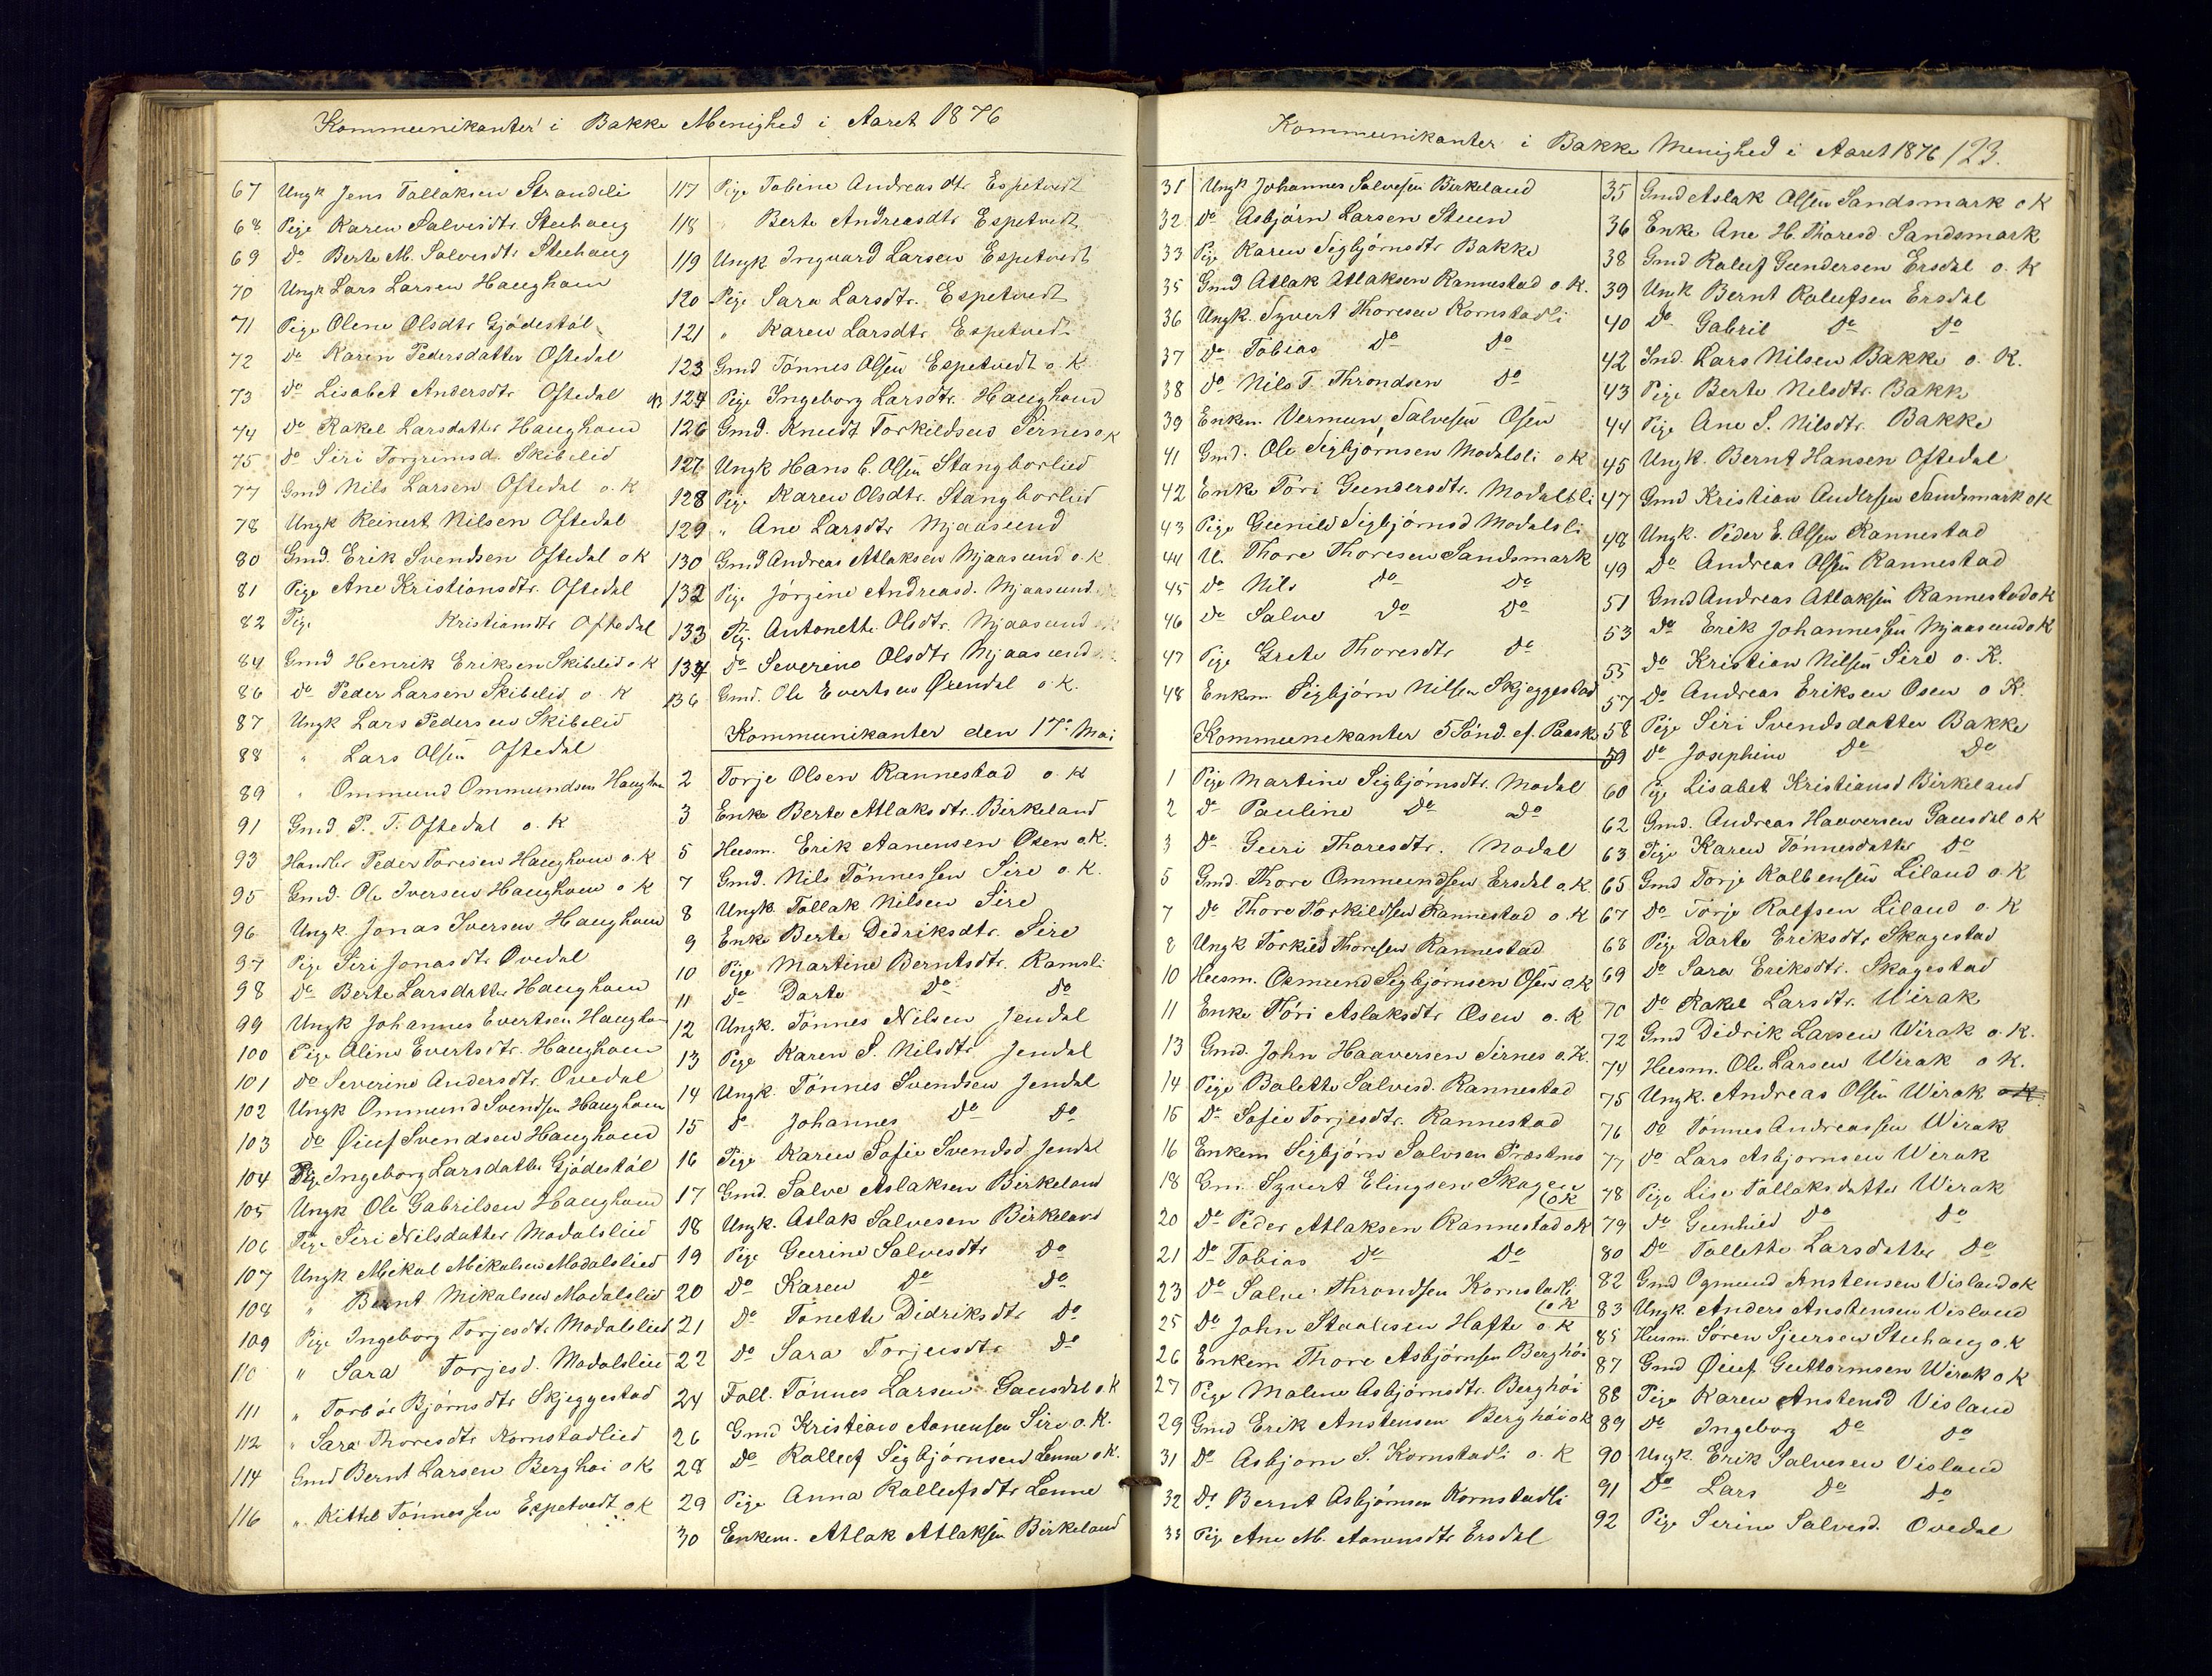 Kommunikanter i Bakke Menighed i Aaret 1876
67 Ungk Jens Tallaksen Strandli
68 Pige Karen Salvesdtr. Steehaug
69 do Berte M. Salvesdtr Steehaug
70 Ungk Lars Larsen Haughom
71 Pige Olene Olsdtr Gjödestöl
72 do Karen Pedersdatter Oftedal
73 do Lisabet Andersdtr Oftedal
74 do Rakel Larsdatter Haughom
75 do Siri Torgrimsd. Skibelid
77 Gmd Nils Larsen Oftedal o. K
78 Ungk Reinert Nilsen Oftedal
80 Gmd. Erik Svendsen Oftedal o K
81 Pige Ane Kristiansdtr. Oftedal
82 Pige Kristiansdtr Oftedal
84 Gmd Henrik Eriksen Skibelid o K
86 do Peder Larsen Skibelid o. K
87 Ungk Lars Pedersen Skibelid
88 " Lars Olsen Oftedal
89 " Ommund Ommundsen Haughom
91 Gmd. P. T. Oftedal o. K
93 Handler Peder Toresen Haughom o. K
95 Gmd. Ole Iversen Haughom o K
96 Ungk. Jonas Iversen Haughom
97 Pige Siri Jonasdtr Ovedal
98 do Berte Larsdatter Haughom
99 Ungk Johannes Evertsen Haughom
100 Pige Oline Evertsdtr. Haughom
101 do Severine Andersdtr. Ovedal
102 Ungk Ommund Svendsen Haughom
103 do Øiuf Svendsen Haughom
104 Pige Ingeborg Larsdatter Gjödestöl
105 Ungk Ole Gabrilsen Haughom
106 Pige Siri Nilsdatter Modalslied
107 Ungk Mikal Mikalsen Modalslied
108 " Bernt Mikalsen Modalslid
109 Pige Ingeborg Torjesdtr. Modalslied
110 " Sara Torjesd. Modalslied
111 " Torbör Bjørnsdtr Skjeggestad
112 " Sara Thoresdtr Kornstadlied
114 Gmd Bernt Larsen Berghøi o K
116 " Kittel Tönnessen Espetvedt o K
117 Pige Tobine Andreasdt. Espetvedt
118 " Berte Andreasdtr Espetvedt
119 Ungk Ingvard Larsen Espetvedt
120 Pige Sara Larsdtr. Espetvedt
121 " Karen Larsdtr. Espetvedt
123 Gmd Tönnes Olsen Espetvedt o K
124 Pige Ingeborg Larsdtr. Haughom
126 Gmd. Knud T Torkildsens Sirnes o K
127 Ungk Hans C. Olsen Stangborlied
128 Pige Karen Olsdtr. Stangborlied
129 " Ane Larsdtr Mjaasund
130 Gmd Andreas Atlaksen Mjaasund o. K
132 Pige Jörgine Andreasd. Mjaasund
133 Pig. Antonette Olsdtr. Mjaasund
134 do Severine Olsdtr Mjaasund
136 Gmd. Ole Evertsen Øiendal o. K.
Kommunikanter den 17de Mai
2 Torje Olsen Rannestad o. K
3 Enke Berte Atlaksdtr. Birkeland
5 Husm. Erik Aanensen Osen o. K.
7 Gmd. Nils Tönnessen Sire o. K.
8 Ungk Tallak Nilsen Sire
9 Enke Berte Dedriksdtr. Sire
10 Pige Martine Berntsdtr. Ramsli
11 do Darte do do
12 Ungk. Tönnes Nilsen Jendal
13 Pige Karen S. Nilsdtr Jendal
14 Ungk. Tönnes Svendsen Jendal
15 do Johannes do do
16 Pige Karen Sofie Svendsd. Jendal
17 Gmd. Salve Aslaksen Birkeland
18 Ungk. Aslak Salvesen Birkeland
19 Pige Gurine Salvesdtr do
20 do Karen do do
21 do Tonette Didriksdtr do
22 do Sara Torjusdtr do
24 Foll. Tönnes Larsen Gausdal o. K
26 Gmd Kristians Aanensen Sire o. K.
28 do Rolleif Sigbjörnsen Lenne o K.
29 Pige Anna Rolleifsdtr Lenne
30 Enkem. Atlak Atlaksen Birkeland
Kommunikanter i Bakke Menighed i Aaret 1876 123.
31 Ungk Johannes Salvesen Birkeland
32 do Asbjörn Larsen Steen
33 Pige Karen Sigbjörnsdtr Bakke
35 Gmd Atlak Atlaksen Rannestad o K.
36 Ungk. Syvert Thoresen Kornstadli
37 do Tobias do do
38 do Nils T. Throndsen do
39 Enkem. Vermun Salvesen Osen
41 Gmd. Ole Sigbjörnsen Modalsli o K
42 Enke Töri Gundersdtr. Modalsli
43 Pige Gunild Sigbjörnsd Modalsli
44 U. Thore Thoresen Sandsmark
45 do Nils do do
46 do Salve do do
47 Pige Grete Thoresdtr do
48 Enkem. Sigbjörn Nilsen Skjeggestad
Kommunekanter 5 Sönd. ef. Paaske
1 Pige Martine Sigbjörnsdtr. Modal
2 do Pauline do do
3 do Guri Thoresdtr. Modal
5 Gmd. Thore Ommundsen Ersdal o. K.
7 do Thore Torkildsen Rannestad o. K
8 Ungk Torkild Thoresen Rannestad
10 Husm. Osmund Sigbjörnsen Osen o. K
11 Enke Töri Aslaksdtr Osen o. K
13 Gmd. John Haaversen Sirnes o. K.
14 Pige Bolette Salvesd. Rannestad
15 do Sofie Torjesdtr. Rannestad
16 Enkem Sigbjörn Salvesen Præstmo
18 Gm. Syvert Elingsen Skagen o K
20 do Peder Atlaksen Rannestad o K
21 do Tobias do do
23 do Salve Throndsen Kornstadli o K
25 do John Staalesen Hafte o. K
26 Enkem Thore Asbjörnsen Berghöi
27 Pige Malene Asbjörnsdtr. Berghöi
29 Gmd Erik Anstensen Berghöi o K
31 do Asbjörn S. Kornstadli o. K
32 do Bernt Asbjörnsen Kornstadli
33 Pige Ane M. Aanensdtr Ersdal
35 Gmd Aslak Olsen Sandsmark o K
36 Enke Ane H. Thoresd Sandsmark
38 Gmd Roleif Gundersen Ersdal o. K
39 Ungk Bernt Roleifsen Ersdal
40 do Gabril do do
42 Ind. Lars Nilsen Bakke o. K.
43 Pige Berte Nilsdtr. Bakke
44 Pige Ane S. Nilsdtr. Bakke
45 Ungk. Bernt Hansen Oftedal
47 Gmd Kristian Andersen Sandsmark o K
48 Ungk. Peder E. Olsen Rannestad
49 do Andreas Olsen Rannestad
51 Gmd Andreas Atlaksen Rannestad o K
53 do Erik Johannessen Mjaasund o K
55 do Kristian Nilsen Sire o. K.
57 do Andreas Eriksen Osen o K.
58 Pige Siri Svendsdatter Bakke
59 do Josephine do do
60 Pige Lisabet Kristiansd Birkeland
62 Gmd. Andreas Haaversen Gausdal o K
63 Pige Karen Tönnesdatter do
65 Gmd Torje Kolbensen Liland o. K
67 do Torje Rolfsen Liland o. K
68 Pige Darte Eriksdtr Skagestad
69 do Sara Eriksdtr. Skagestad
70 do Rakel Larsdtr. Wirak
72 Gmd Didrik Larsen Wirak o. K.
74 Husm. Ole Larsen Wirak o K.
75 Ungk. Andreas Olsen Wirak o K.
76 do Tönnes Andreassen Wirak
77 do Lars Asbjornsen Wirak
78 Pige Lise Tallaksdatter Wirak
79 do Gunhild do do
80 do Tollette Larsdatter do
82 Gmd Ogmund Anstensen Visland o K
83 Ungk. Anders Anstensen Visland
85 Husm. Sören Sjursen Steehaug o. K
87 Gmd Øiuf Guttormsen Wirak o K
88 Pige Karen Anstensd Visland
89 do Ingeborg do do
90 Ungk. Erik Salvesen Visland
91 do Lars do do
92 Pige Serine Salvesd. Ovedal